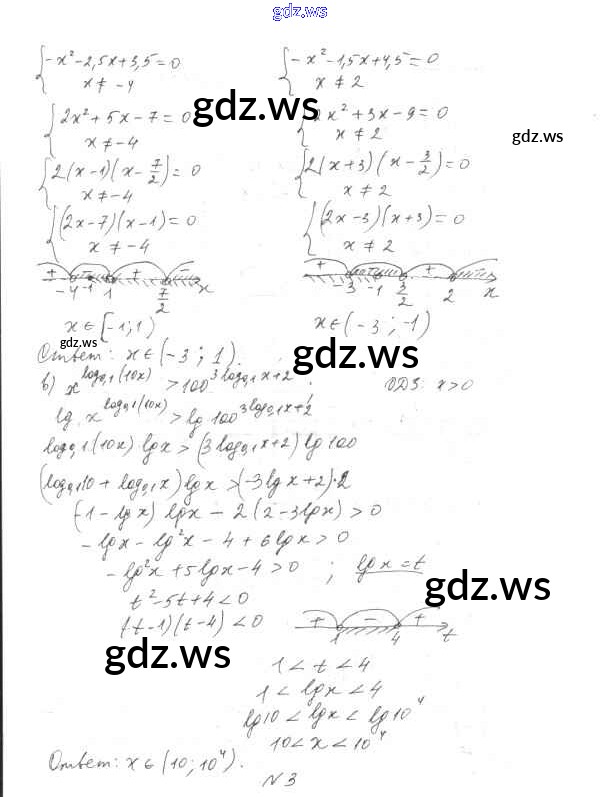 gdz.ws
{-x²-2,5x+3,5=0
x≠-4
{2x²+5x-7=0
x≠-4
{2(x-1)(x-7/2)=0
x≠-4
{(2x-7)(x-1)=0
x≠-4
+ - + -
-4 -1 1 7/2 x
x∈[-1;1)
{-x²-1,5x+4,5=0
x≠2
{2x²+3x-9=0
x≠2
{2(x+3)(x-3/2)=0
x≠2
{(2x-3)(x+3)=0
x≠2
+ +
-3 -1 3/2 2 x
x∈(-3;-1)
gdz.ws
gdz.ws
gdz.ws
gdz.ws
Ответ: x∈(-3;1).
в) x^(log₀,₁(10x)) > 100^(3log₀,₁x+2); ОДЗ: x>0
lg x^(log₀,₁(10x)) > lg 100^(3log₀,₁x+2)
log₀,₁(10x)·lgx > (3log₀,₁x+2)lg100
(log₀,₁10+log₀,₁x)lgx > (-3lgx+2)·2
(-1-lgx)lgx-2(2-3lgx)>0
-lgx-lg²x-4+6lgx>0
-lg²x+5lgx-4>0 ; lgx=t
t²-5t+4<0
(t-1)(t-4)<0
+ - +
1 4 t
gdz.ws
gdz.ws
1<t<4
1<lgx<4
lg10<lgx<lg10⁴
10<x<10⁴
Ответ: x∈(10;10⁴).
N3